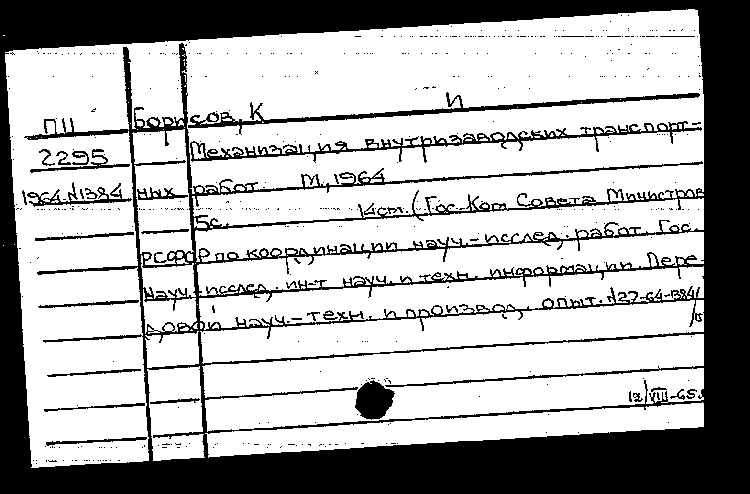 П11 Борисов, К И
2295 Механизация внутризаводских транспорт-
1964.№1384 ных работ. М., 1964
5с. 14см. (Гос. Ком Совета Министров
РСФСР по координации науч.-исслед. работ. Гос.
науч.-исслед. ин-т науч. и техн. информации. Пере-
довой науч.-техн. и производ. опыт. №27-64-1384/
15
12/VIII-65